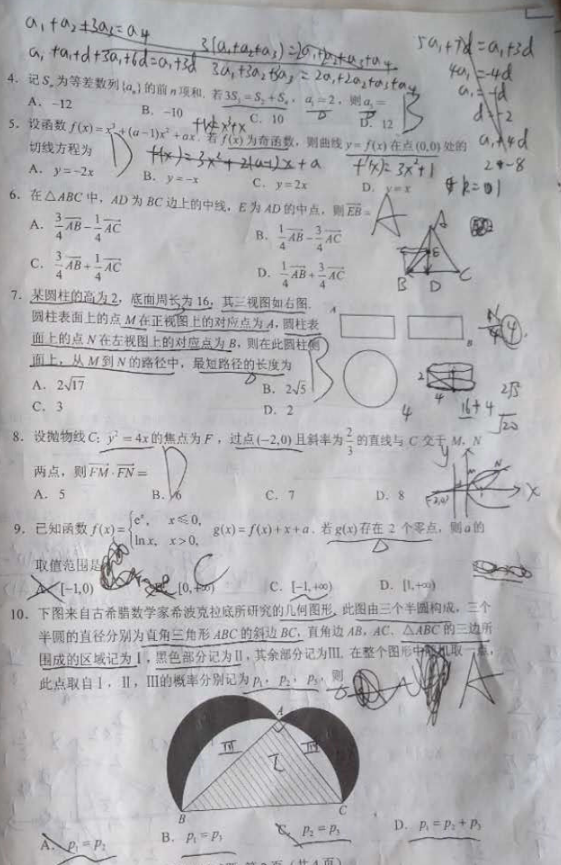 a₁+a₂+3a₃=a₄
3(a₁+a₂+a₃)=2a₁+2a₂+a₃+a₄
5a₁+7d=a₁+3d
a₁+a₁+d+3a₁+6d=a₁+3d
3a₁+3a₂+3a₃=2a₁+2a₂+a₃+a₄
4a₁=-4d
a₁=-d
d=-2
a₁+4d
2+-8
4. 记Sₙ为等差数列{aₙ}的前n项和. 若3S₃=S₂+S₄, a₁=2, 则a₅= B
A. -12 B. -10 C. 10 D. 12
f(x)=x³+x
5. 设函数f(x)=x³+(a-1)x²+ax. 若f(x)为奇函数, 则曲线y=f(x)在点(0,0)处的
切线方程为 D f(x)=3x²+2(a-1)x+a f'(x)=3x²+1
A. y=-2x B. y=-x C. y=2x D. y=x
k=1
6. 在△ABC中, AD为BC边上的中线, E为AD的中点, 则EB= A
A. 3/4AB-1/4AC B. 1/4AB-3/4AC
C. 3/4AB+1/4AC D. 1/4AB+3/4AC
A
E
B D C
7. 某圆柱的高为2, 底面周长为16, 其三视图如右图.
圆柱表面上的点M在正视图上的对应点为A, 圆柱表
面上的点N在左视图上的对应点为B, 则在此圆柱侧
面上, 从M到N的路径中, 最短路径的长度为 B
A
B
A. 2√17 B. 2√5
C. 3 D. 2
2
4
16+4
2√5
√20
4
8. 设抛物线C: y²=4x的焦点为F, 过点(-2,0)且斜率为2/3的直线与C交于M, N
两点, 则FM·FN= D
A. 5 B. 6 C. 7 D. 8
y
N
(-2,0)
x
9. 已知函数f(x)={eˣ, x≤0, ln x, x>0, g(x)=f(x)+x+a. 若g(x)存在2个零点, 则a的
取值范围是 C
A. [-1,0) B. [0,+∞) C. [-1,+∞) D. [1,+∞)
10. 下图来自古希腊数学家希波克拉底所研究的几何图形. 此图由三个半圆构成, 三个
半圆的直径分别为直角三角形ABC的斜边BC, 直角边AB, AC. △ABC的三边所
围成的区域记为I, 黑色部分记为II, 其余部分记为III. 在整个图形中随机取一点,
此点取自I, II, III的概率分别记为p₁, p₂, p₃, 则 A
A
III I III
B C
A. p₁=p₂ B. p₁=p₃ C. p₂=p₃ D. p₁=p₂+p₃